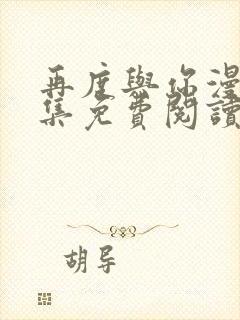 再度與你漫
集免費閱讀
胡导